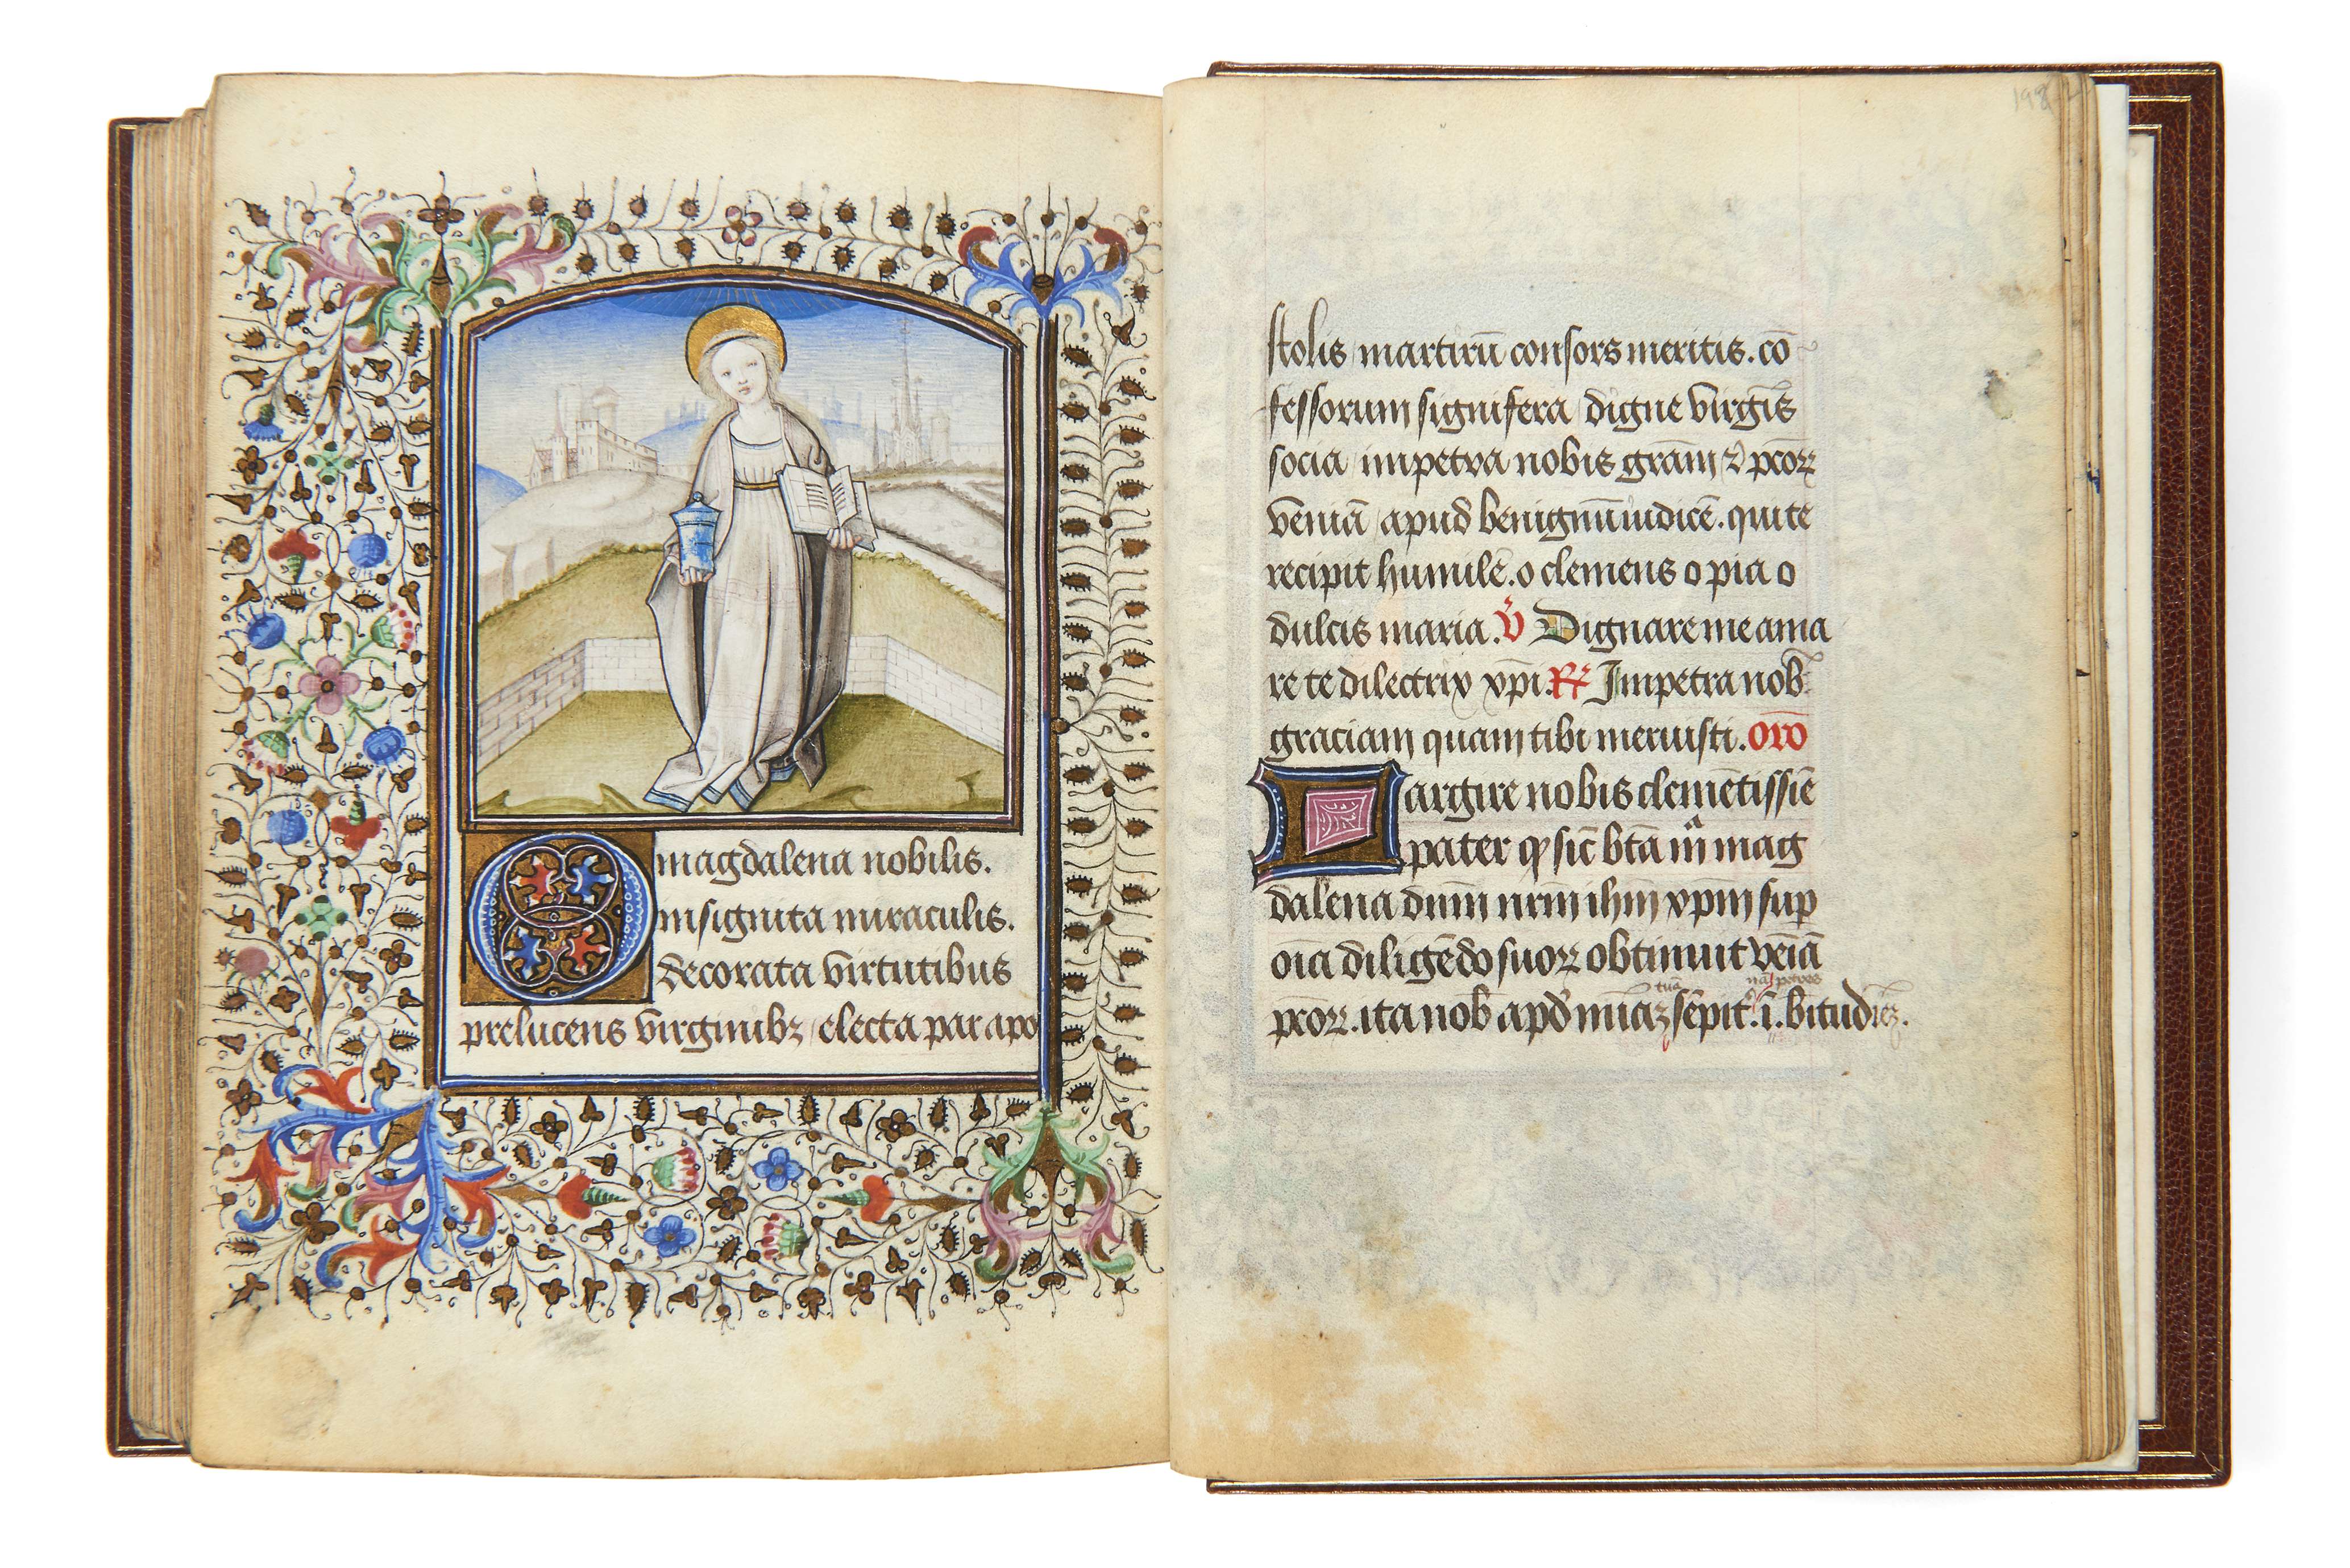 O magdalena nobilis.
insignita miraculis.
decorata virtutibus
prelucens virginibꝫ / electa par apo
198
stolis / martirū consors meritis. cō
fessorum signifera / digne virgīs
socia / impetra nobis grām ⁊ pccoꝝ
veniā / apud benignū iudicē. qui te
recipit humilē. o clemens o pia o
dulcis maria. v̄ Dignare me ama
re te dilectrix xp̄i. ℟ Impetra nob̄
graciam quam tibi meruisti. orō
Largire nobis clemētissīe
pater ꝙ sic̄ btā m̄ᵃ mag
dalena dn̄m nr̄m ihm̄ xp̄m sup
oīa diligēdo suoꝝ obtinuit veīā
tuā
pccoꝝ. ita nob̄ apd̄ mīaꝫ sēpit. ī. bītudīeꝫ.